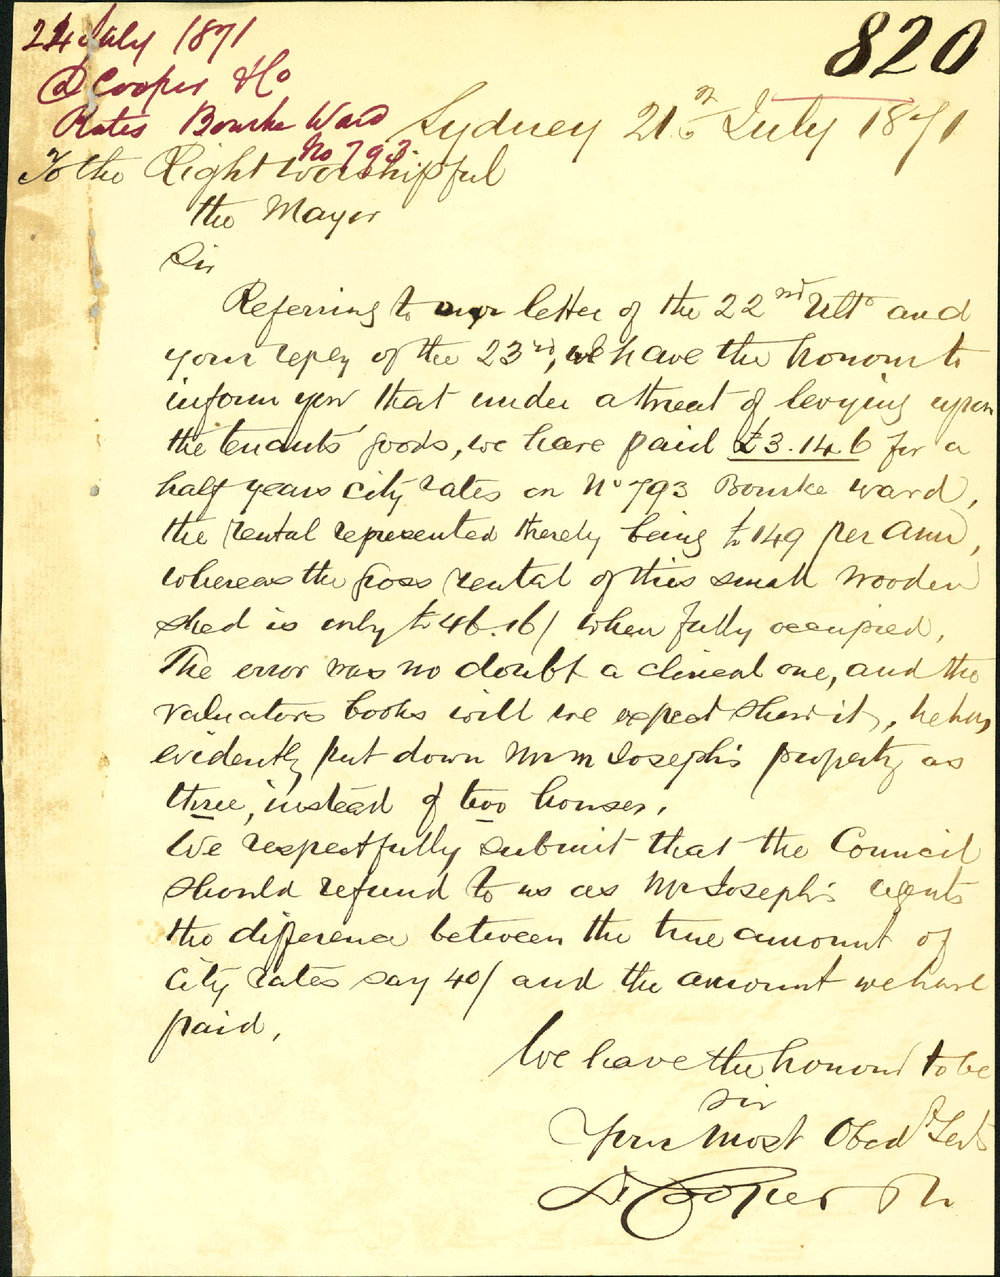 24 July 1871
D Cooper & Co
Rates Bourke Ward
No 793
820
Sydney 21st July 1871
To the Right Worshipful
the Mayor
Sir
Referring to our letter of the 22nd Ulto and
your reply of the 23rd, we have the honour to
inform you that under a threat of levying upon
the tenants' goods, we have paid £3.14.6 for a
half years city rates on No 793 Bourke Ward,
the rental represented thereby being £149 per Ann,
whereas the gross rental of this small wooden
shed is only £46.16/ when fully occupied.
The error was no doubt a clerical one, and the
valuators books will we expect shew it, he has
evidently put down Mr M Joseph's property as
three, instead of two houses.
We respectfully submit that the Council
should refund to us as Mr Joseph's agents
the difference between the true amount of
City rates say 40/ and the amount we have
paid,
We have the honour to be
Sir
Your Most Obedt Servts
D Cooper